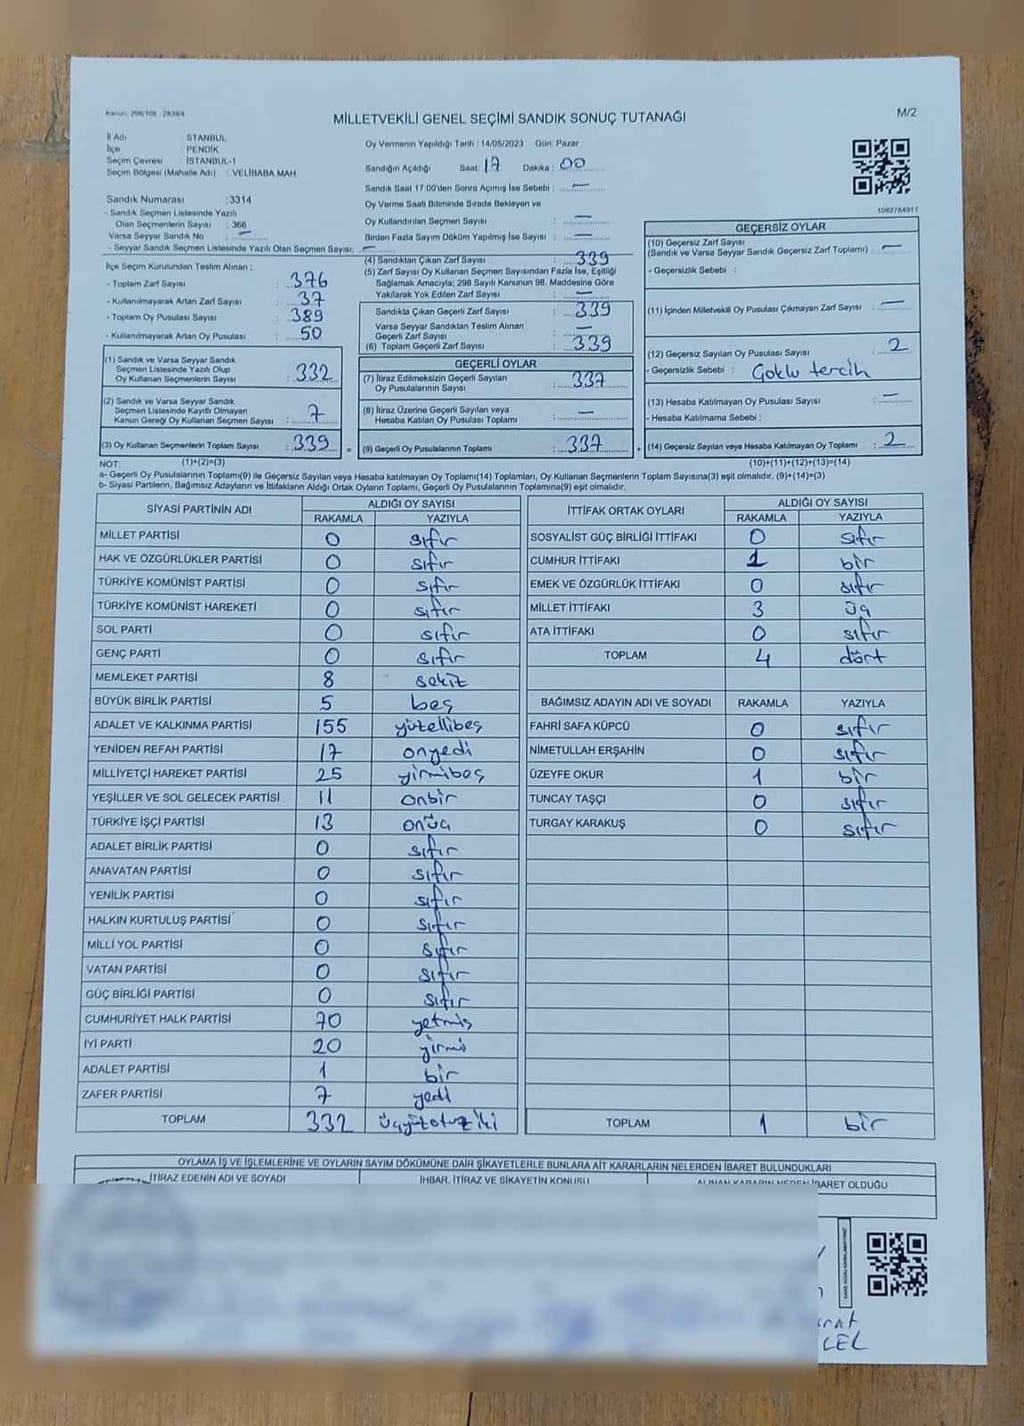 Kanun: 298/105 , 2839/4
MİLLETVEKİLİ GENEL SEÇİMİ SANDIK SONUÇ TUTANAĞI
M/2
İl Adı : İSTANBUL
İlçe : PENDİK
Seçim Çevresi : İSTANBUL-1
Seçim Bölgesi (Mahalle Adı) : VELİBABA MAH.
Sandık Numarası :3314
- Sandık Seçmen Listesinde Yazılı
Olan Seçmenlerin Sayısı : 366
Varsa Seyyar Sandık No : —
- Seyyar Sandık Seçmen Listesinde Yazılı Olan Seçmen Sayısı: —
İlçe Seçim Kurulundan Teslim Alınan :
- Toplam Zarf Sayısı : 376
- Kullanılmayarak Artan Zarf Sayısı : 37
- Toplam Oy Pusulası Sayısı : 389
- Kullanılmayarak Artan Oy Pusulası : 50
(1) Sandık ve Varsa Seyyar Sandık
Seçmen Listesinde Yazılı Olup
Oy Kullanan Seçmenlerin Sayısı : 332
(2) Sandık ve Varsa Seyyar Sandık
Seçmen Listesinde Kayıtlı Olmayan
Kanun Gereği Oy Kullanan Seçmen Sayısı : 7
(3) Oy Kullanan Seçmenlerin Toplam Sayısı : 339
Oy Vermenin Yapıldığı Tarih : 14/05/2023 Gün: Pazar
Sandığın Açıldığı Saat: 17 Dakika : 00
Sandık Saat 17:00'den Sonra Açımış İse Sebebi : —
Oy Verme Saati Bitiminde Sırada Bekleyen ve
Oy Kullandırılan Seçmen Sayısı : —
Birden Fazla Sayım Döküm Yapılmış İse Sayısı : —
(4) Sandıktan Çıkan Zarf Sayısı : 339
(5) Zarf Sayısı Oy Kullanan Seçmen Sayısından Fazla İse, Eşitliği
Sağlamak Amacıyla; 298 Sayılı Kanunun 98. Maddesine Göre
Yakılarak Yok Edilen Zarf Sayısı : —
Sandıkta Çıkan Geçerli Zarf Sayısı : 339
Varsa Seyyar Sandıktan Teslim Alınan
Geçerli Zarf Sayısı : —
(6) Toplam Geçerli Zarf Sayısı : 339
GEÇERLİ OYLAR
(7) İtiraz Edilmeksizin Geçerli Sayılan
Oy Pusulalarının Sayısı : 337
(8) İtiraz Üzerine Geçerli Sayılan veya
Hesaba Katılan Oy Pusulası Toplamı : —
= (9) Geçerli Oy Pusulalarının Toplamı : 337
1082764911
GEÇERSİZ OYLAR
(10) Geçersiz Zarf Sayısı
(Sandık ve Varsa Seyyar Sandık Geçersiz Zarf Toplamı) : —
- Geçersizlik Sebebi :
(11) İçinden Milletvekili Oy Pusulası Çıkmayan Zarf Sayısı : —
(12) Geçersiz Sayılan Oy Pusulası Sayısı : 2
- Geçersizlik Sebebi : Çoklu tercih
(13) Hesaba Katılmayan Oy Pusulası Sayısı : —
- Hesaba Katılmama Sebebi :
+ (14) Geçersiz Sayılan veya Hesaba Katılmayan Oy Toplamı : 2
NOT: (1)+(2)=(3)
(10)+(11)+(12)+(13)=(14)
a- Geçerli Oy Pusulalarının Toplamı(9) ile Geçersiz Sayılan veya Hesaba Katılmayan Oy Toplamı(14) Toplamları, Oy Kullanan Seçmenlerin Toplam Sayısına(3) eşit olmalıdır. (9)+(14)=(3)
b- Siyasi Partilerin, Bağımsız Adayların ve İttifakların Aldığı Ortak Oyların Toplamı, Geçerli Oy Pusulalarının Toplamına(9) eşit olmalıdır.
SİYASİ PARTİNİN ADI ALDIĞI OY SAYISI
RAKAMLA YAZIYLA
MİLLET PARTİSİ 0 sıfır
HAK VE ÖZGÜRLÜKLER PARTİSİ 0 sıfır
TÜRKİYE KOMÜNİST PARTİSİ 0 sıfır
TÜRKİYE KOMÜNİST HAREKETİ 0 sıfır
SOL PARTİ 0 sıfır
GENÇ PARTİ 0 sıfır
MEMLEKET PARTİSİ 8 sekiz
BÜYÜK BİRLİK PARTİSİ 5 beş
ADALET VE KALKINMA PARTİSİ 155 yüzellibeş
YENİDEN REFAH PARTİSİ 17 onyedi
MİLLİYETÇİ HAREKET PARTİSİ 25 yirmibeş
YEŞİLLER VE SOL GELECEK PARTİSİ 11 onbir
TÜRKİYE İŞÇİ PARTİSİ 13 onüç
ADALET BİRLİK PARTİSİ 0 sıfır
ANAVATAN PARTİSİ 0 sıfır
YENİLİK PARTİSİ 0 sıfır
HALKIN KURTULUŞ PARTİSİ 0 sıfır
MİLLİ YOL PARTİSİ 0 sıfır
VATAN PARTİSİ 0 sıfır
GÜÇ BİRLİĞİ PARTİSİ 0 sıfır
CUMHURİYET HALK PARTİSİ 70 yetmiş
İYİ PARTİ 20 yirmi
ADALET PARTİSİ 1 bir
ZAFER PARTİSİ 7 yedi
TOPLAM 332 üçyüzotuziki
İTTİFAK ORTAK OYLARI ALDIĞI OY SAYISI
RAKAMLA YAZIYLA
SOSYALİST GÜÇ BİRLİĞİ İTTİFAKI 0 sıfır
CUMHUR İTTİFAKI 1 bir
EMEK VE ÖZGÜRLÜK İTTİFAKI 0 sıfır
MİLLET İTTİFAKI 3 üç
ATA İTTİFAKI 0 sıfır
TOPLAM 4 dört
BAĞIMSIZ ADAYIN ADI VE SOYADI RAKAMLA YAZIYLA
FAHRİ SAFA KÜPCÜ 0 sıfır
NİMETULLAH ERŞAHİN 0 sıfır
ÜZEYFE OKUR 1 bir
TUNCAY TAŞÇI 0 sıfır
TURGAY KARAKUŞ 0 sıfır
TOPLAM 1 bir
OYLAMA İŞ VE İŞLEMLERİNE VE OYLARIN SAYIM DÖKÜMÜNE DAİR ŞİKAYETLERLE BUNLARA AİT KARARLARIN NELERDEN İBARET BULUNDUKLARI
İTİRAZ EDENİN ADI VE SOYADI İHBAR, İTİRAZ VE ŞİKAYETİN KONUSU ALINAN KARARIN NEDEN İBARET OLDUĞU